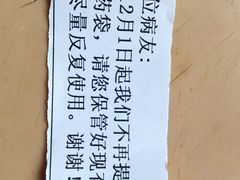 位病友：
2月1日起我们不再提
药袋，请您保管好现有
尽量反复使用。谢谢！